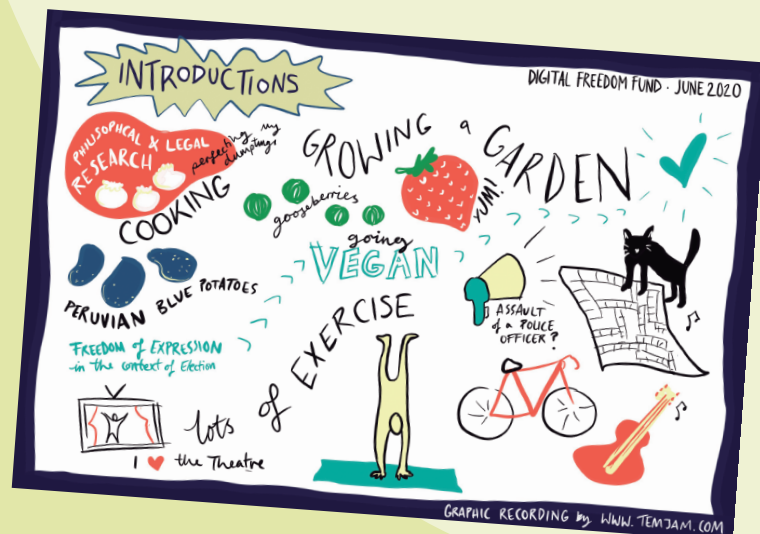 INTRODUCTIONS
DIGITAL FREEDOM FUND · JUNE 2020
PHILISOPHCAL & LEGAL
RESEARCH
perfecting my
dumplings
COOKING
GROWING a GARDEN
gooseberries
YUM!
going
VEGAN
PERUVIAN BLUE POTATOES
ASSAULT
of a POLICE
OFFICER?
FREEDOM of EXPRESSION
in the context of Election
lots of EXERCISE
I ♥ the Theatre
GRAPHIC RECORDING by WWW.TEMJAM.COM